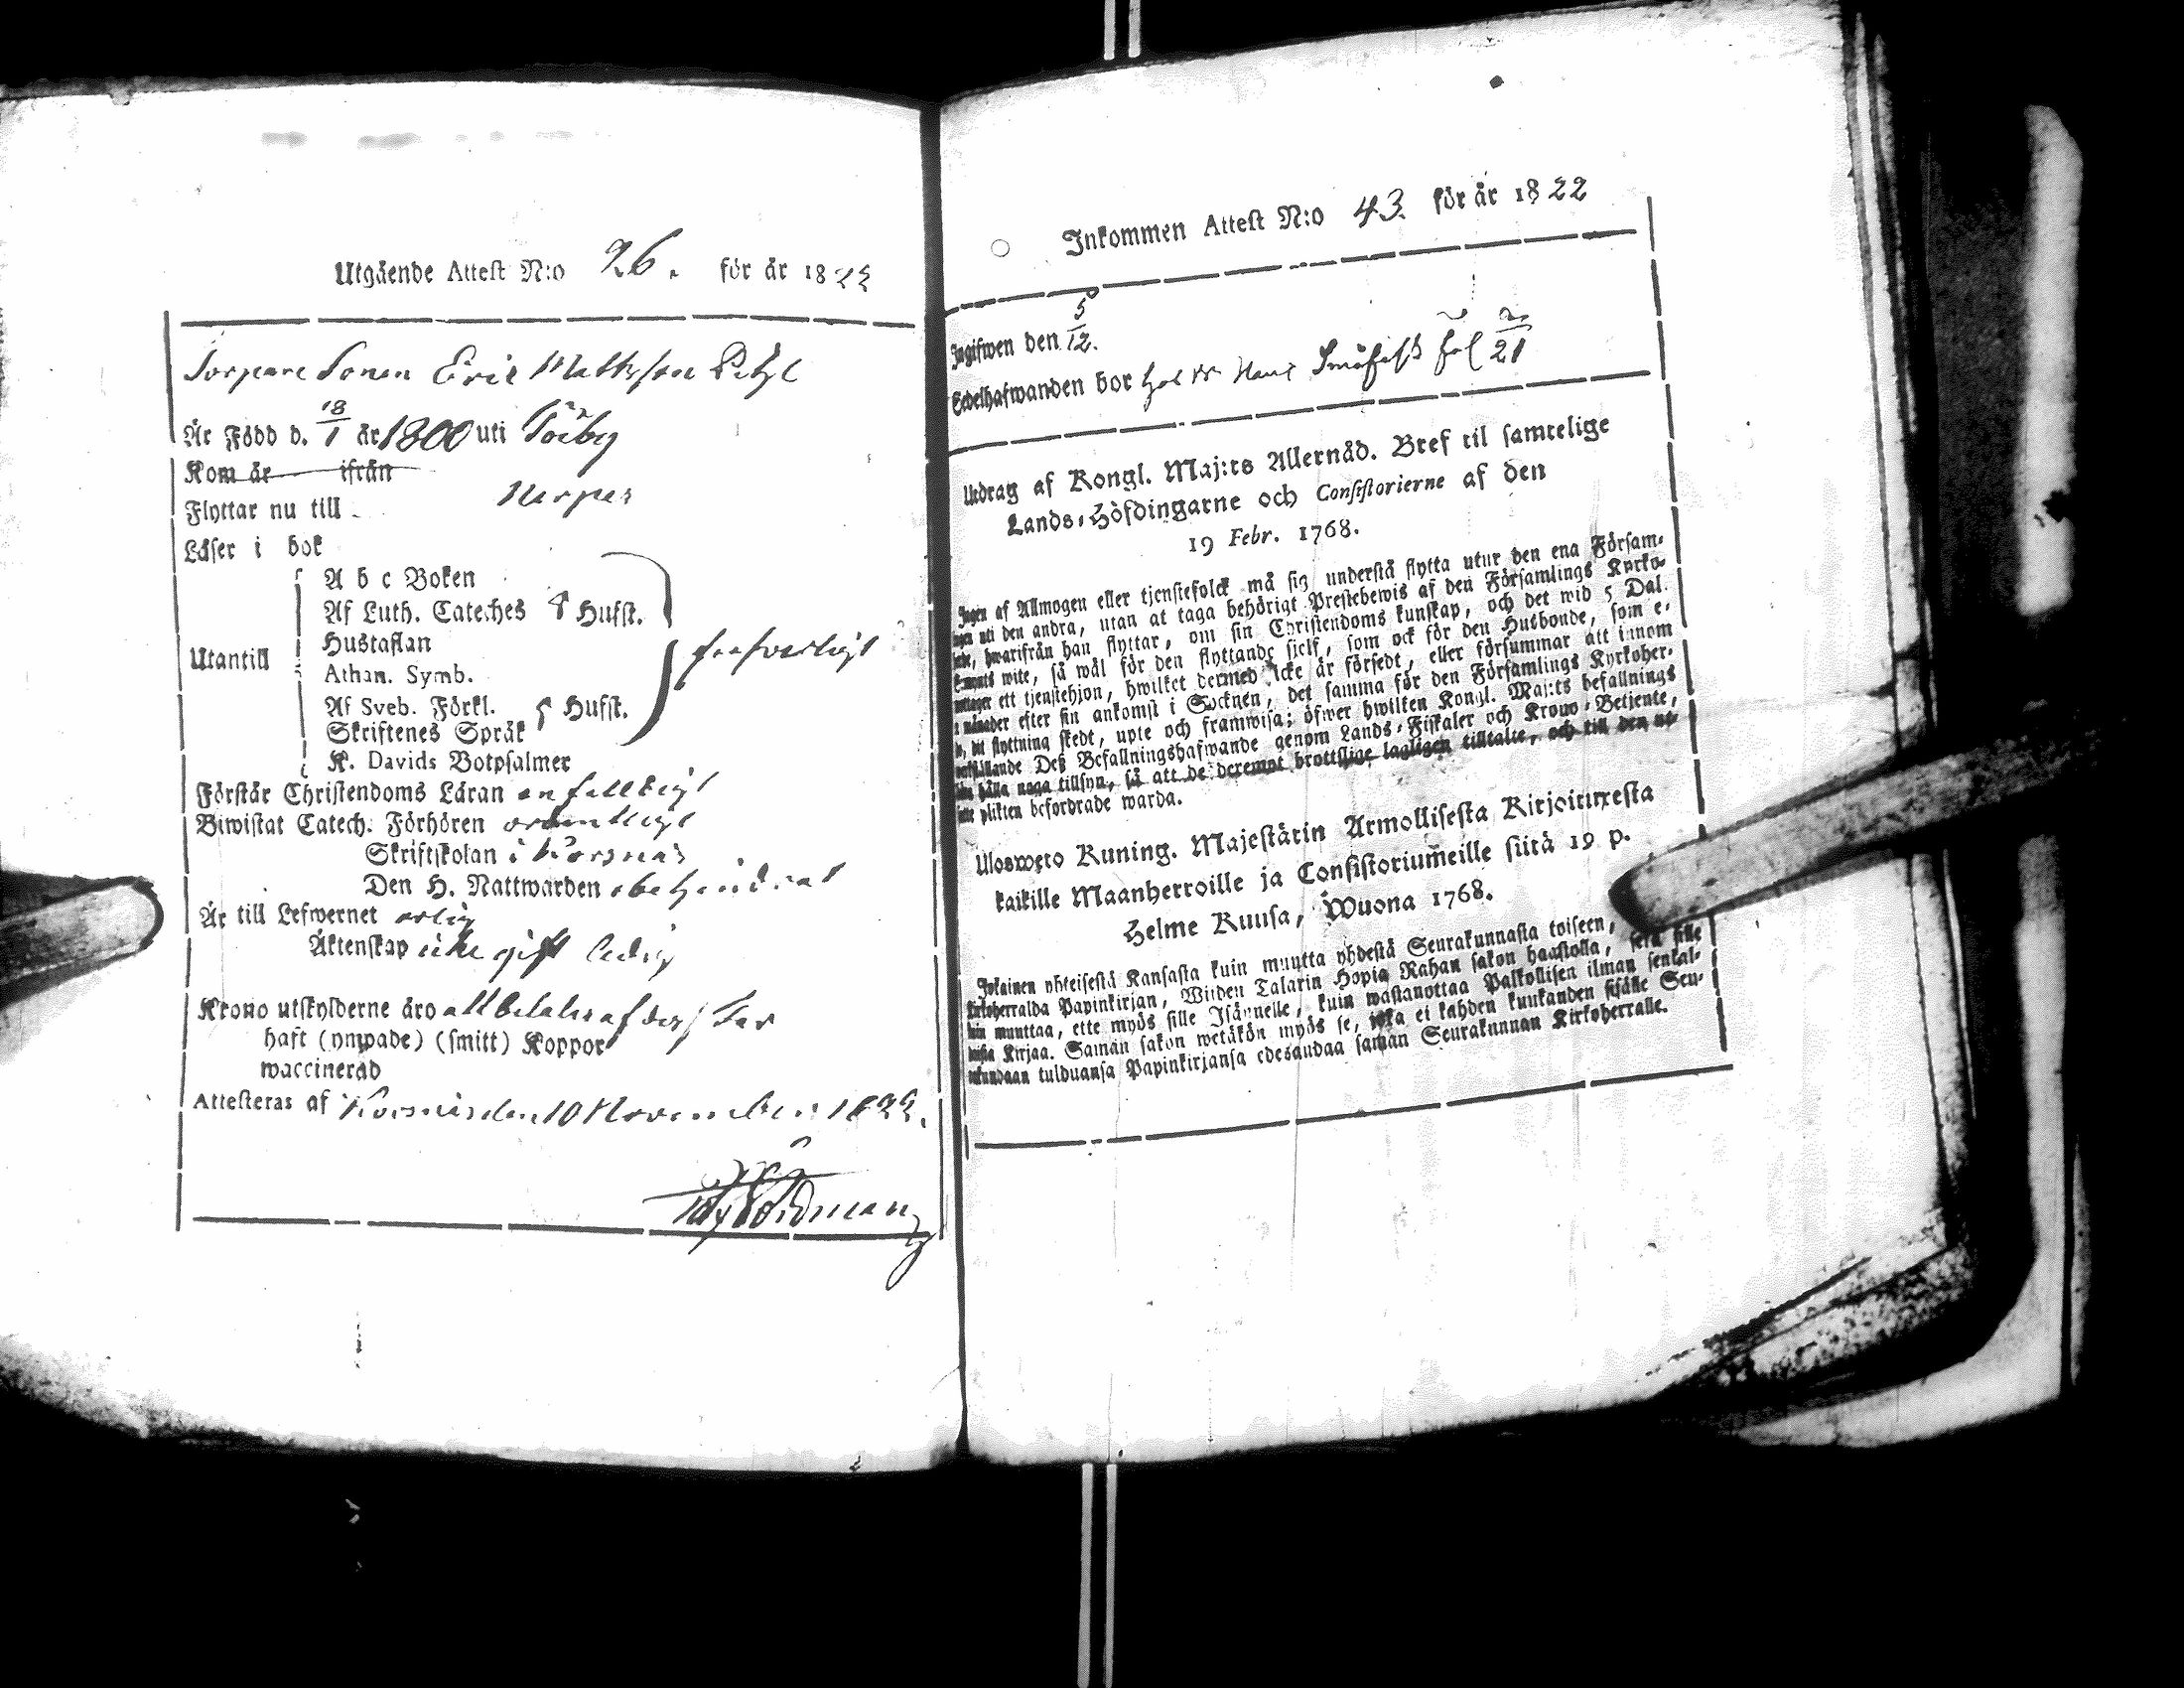 Utgående Attest N:o 26. för år 1822
Torpare Sonen Eric Mattsson
Är Född d. 18/1 år 1800 uti Töiby
Kom år ifrån
Flyttar nu till Nerpes
Läser i bok
A b c Boken
Af Luth. Cateches 8 Hufst.
Hustaflan
Utantill
Athan. Symb.
Af Sveb. Förkl. 5 Hufst.
Skriftenes Språk
K. Davids Botpsalmer
Förstår Christendoms Läran enfalldigt
Biwistat Catech. Förhören ordentligt
Skriftskolan i Korsnäs
Den H. Nattwarden obehindrat
Är till Lefwernet ärlig
Äktenskap icke gift ledig
Krono utskylderne äro allbetalas af dess Far
haft (ympade) (smitt) Koppor
waccinerad
Attesteras af Korsnäs den 10 November 1822.
Nordman
Inkommen Attest N:o 43. för år 1822
Ingifwen den 5/12.
Sedelhafwanden bor hos Hans fol 21
Utdrag af Kongl. Maj:ts Allernåd. Bref til samtelige
Lands-Höfdingarne och Consistorierne af den
19 Febr. 1768.
Ingen af Allmogen eller tjenstefolck må sig understå flytta utur den ena Försam-
uti den andra, utan at taga behörigt Prestebewis af den Församlings Kyrko-
hwarifrån han flyttar, om sin Christendoms kunskap, och det wid 5 Dal.
wite, så wäl för den flyttande sielf, som ock för den Husbonde, som e-
ett tjenstehjon, hwilket dermed icke är försedt, eller försummar att innom
månader efter sin ankomst i Socknen, det samma för den Församlings Kyrkoher-
dit flyttning skedt, upte och framwisa; öfwer hwilken Kongl. Maj:ts befallnings
Deß Befallningshafwande genom Lands-Fiskaler och Krono-Betjente,
hålla noga tillsyn, så att de deremot brottslige lagligen tilltalte, och till den ut-
plikten befordrade warda.
Ulosweto Kuning. Majestätin Armollisesta Kirjoituxesta
kaikille Maanherroille ja Consistoriumeille siitä 19 p.
Helme Kuusa, Wuona 1768.
Jokainen yhteisestä Kansasta kuin muutta yhdestä Seurakunnasta toiseen,
Kirkoherralda Papinkirjan, Wiiden Talarin Hopia Rahan sakon haastolla, sekä sille
kuin muuttaa, ette myös sille Isännelle, kuin wastanottaa Palkollisen ilman senkal-
Kirjaa. Saman sakon wetäkön myös se, joka ei kahden kuukanden sisälle Seu-
rakundaan tulduansa Papinkirjansa edesandaa saman Seurakunnan Kirkoherralle.